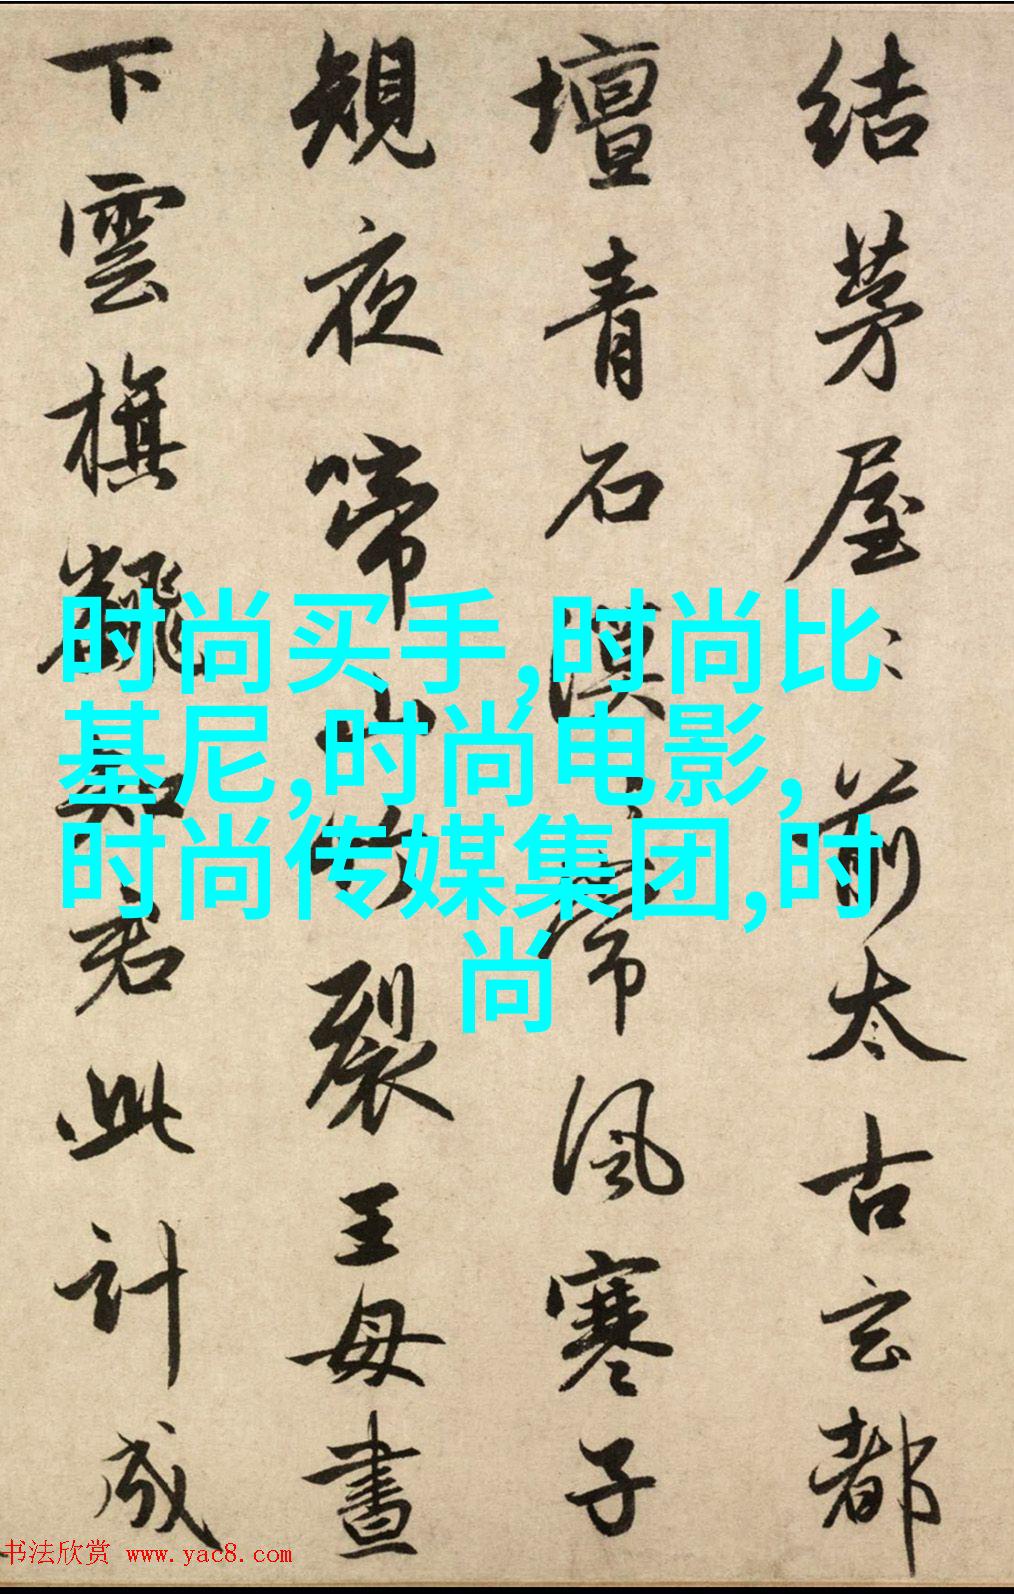 結茅屋〻前太古玄都
壇青石漠〻常風寒子
規夜啼山竹裂王母晝
下雲旗飜知君此計成
时尚买手,时尚比
基尼,时尚电影,
时尚传媒集团,时
尚
书法欣赏 www.yac8.com